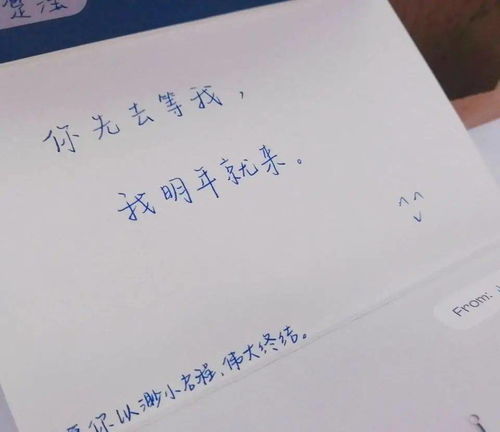 你先去等我，
我明年就来。
^^
From:
你以渺小启程，伟大终结。